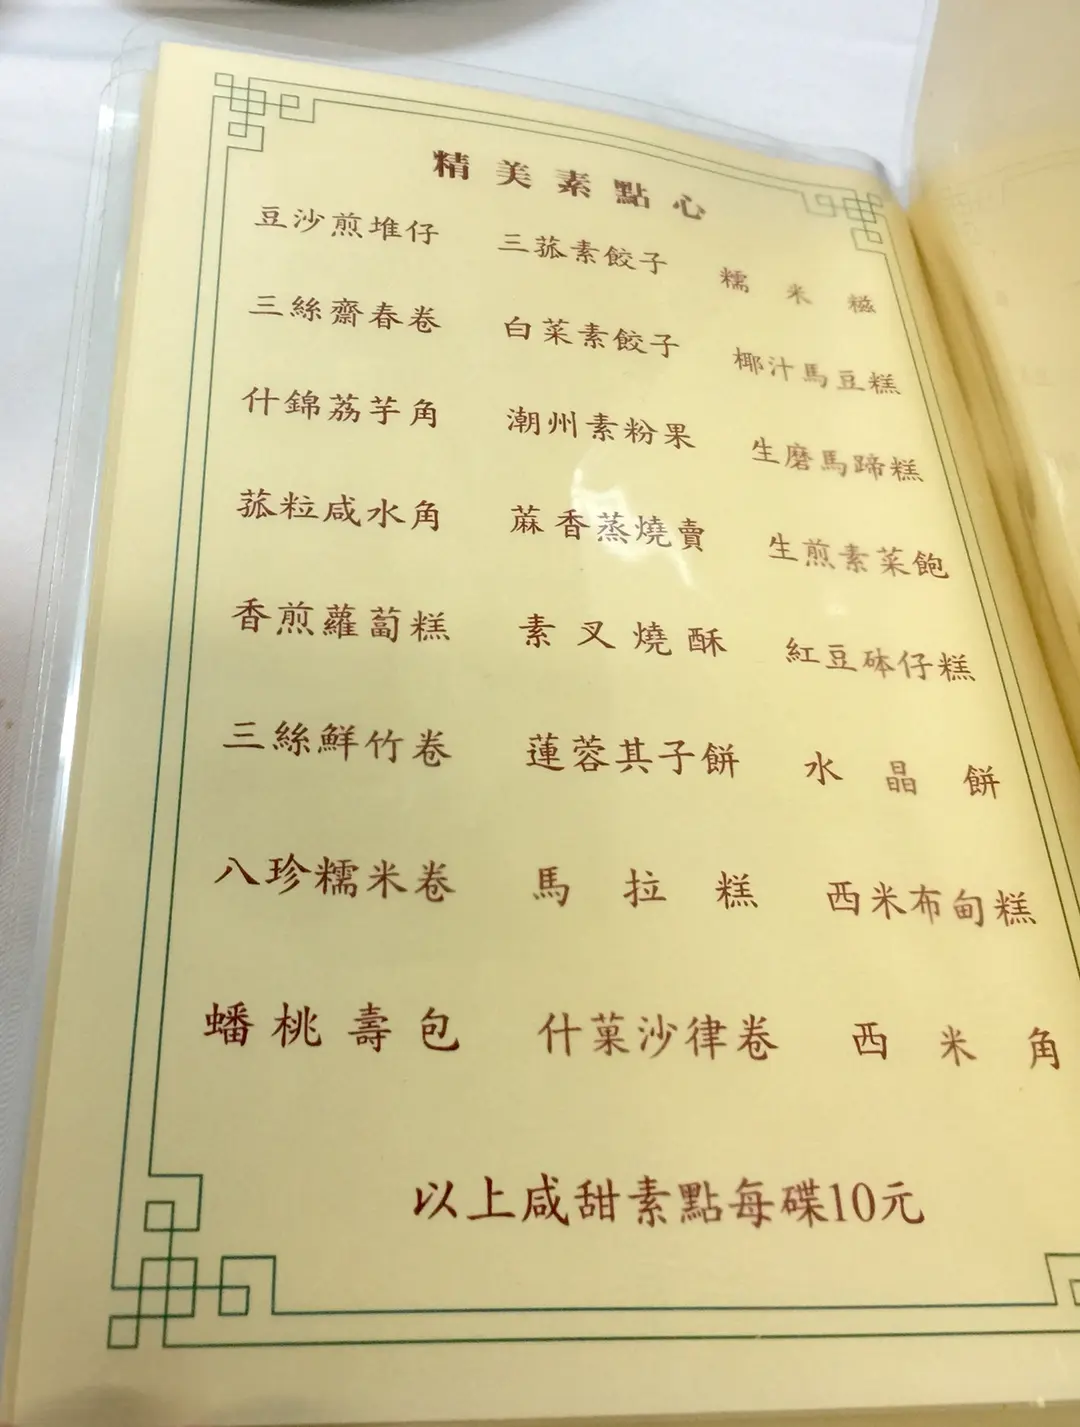 精美素點心
豆沙煎堆仔 三菰素餃子 糯米糍
三絲齋春卷 白菜素餃子 椰汁馬豆糕
什錦荔芋角 潮州素粉果 生磨馬蹄糕
菰粒咸水角 蔴香蒸燒賣 生煎素菜飽
香煎蘿蔔糕 素叉燒酥 紅豆砵仔糕
三絲鮮竹卷 蓮蓉其子餅 水晶餅
八珍糯米卷 馬拉糕 西米布甸糕
蟠桃壽包 什菓沙律卷 西米角
以上咸甜素點每碟10元